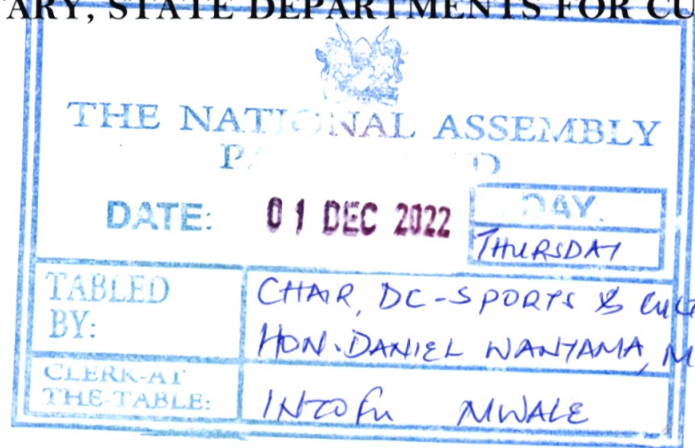 ARY, STATE DEPARTMENTS FOR CU
THE NATIONAL ASSEMBLY
DATE: 01 DEC 2022
DAY.
THURSDAY
TABLED
BY:
CHAIR, DC-SPORTS &
HON. DANIEL WANYAMA, M
CLERK-AT
THE-TABLE:
INZOFU MWALE